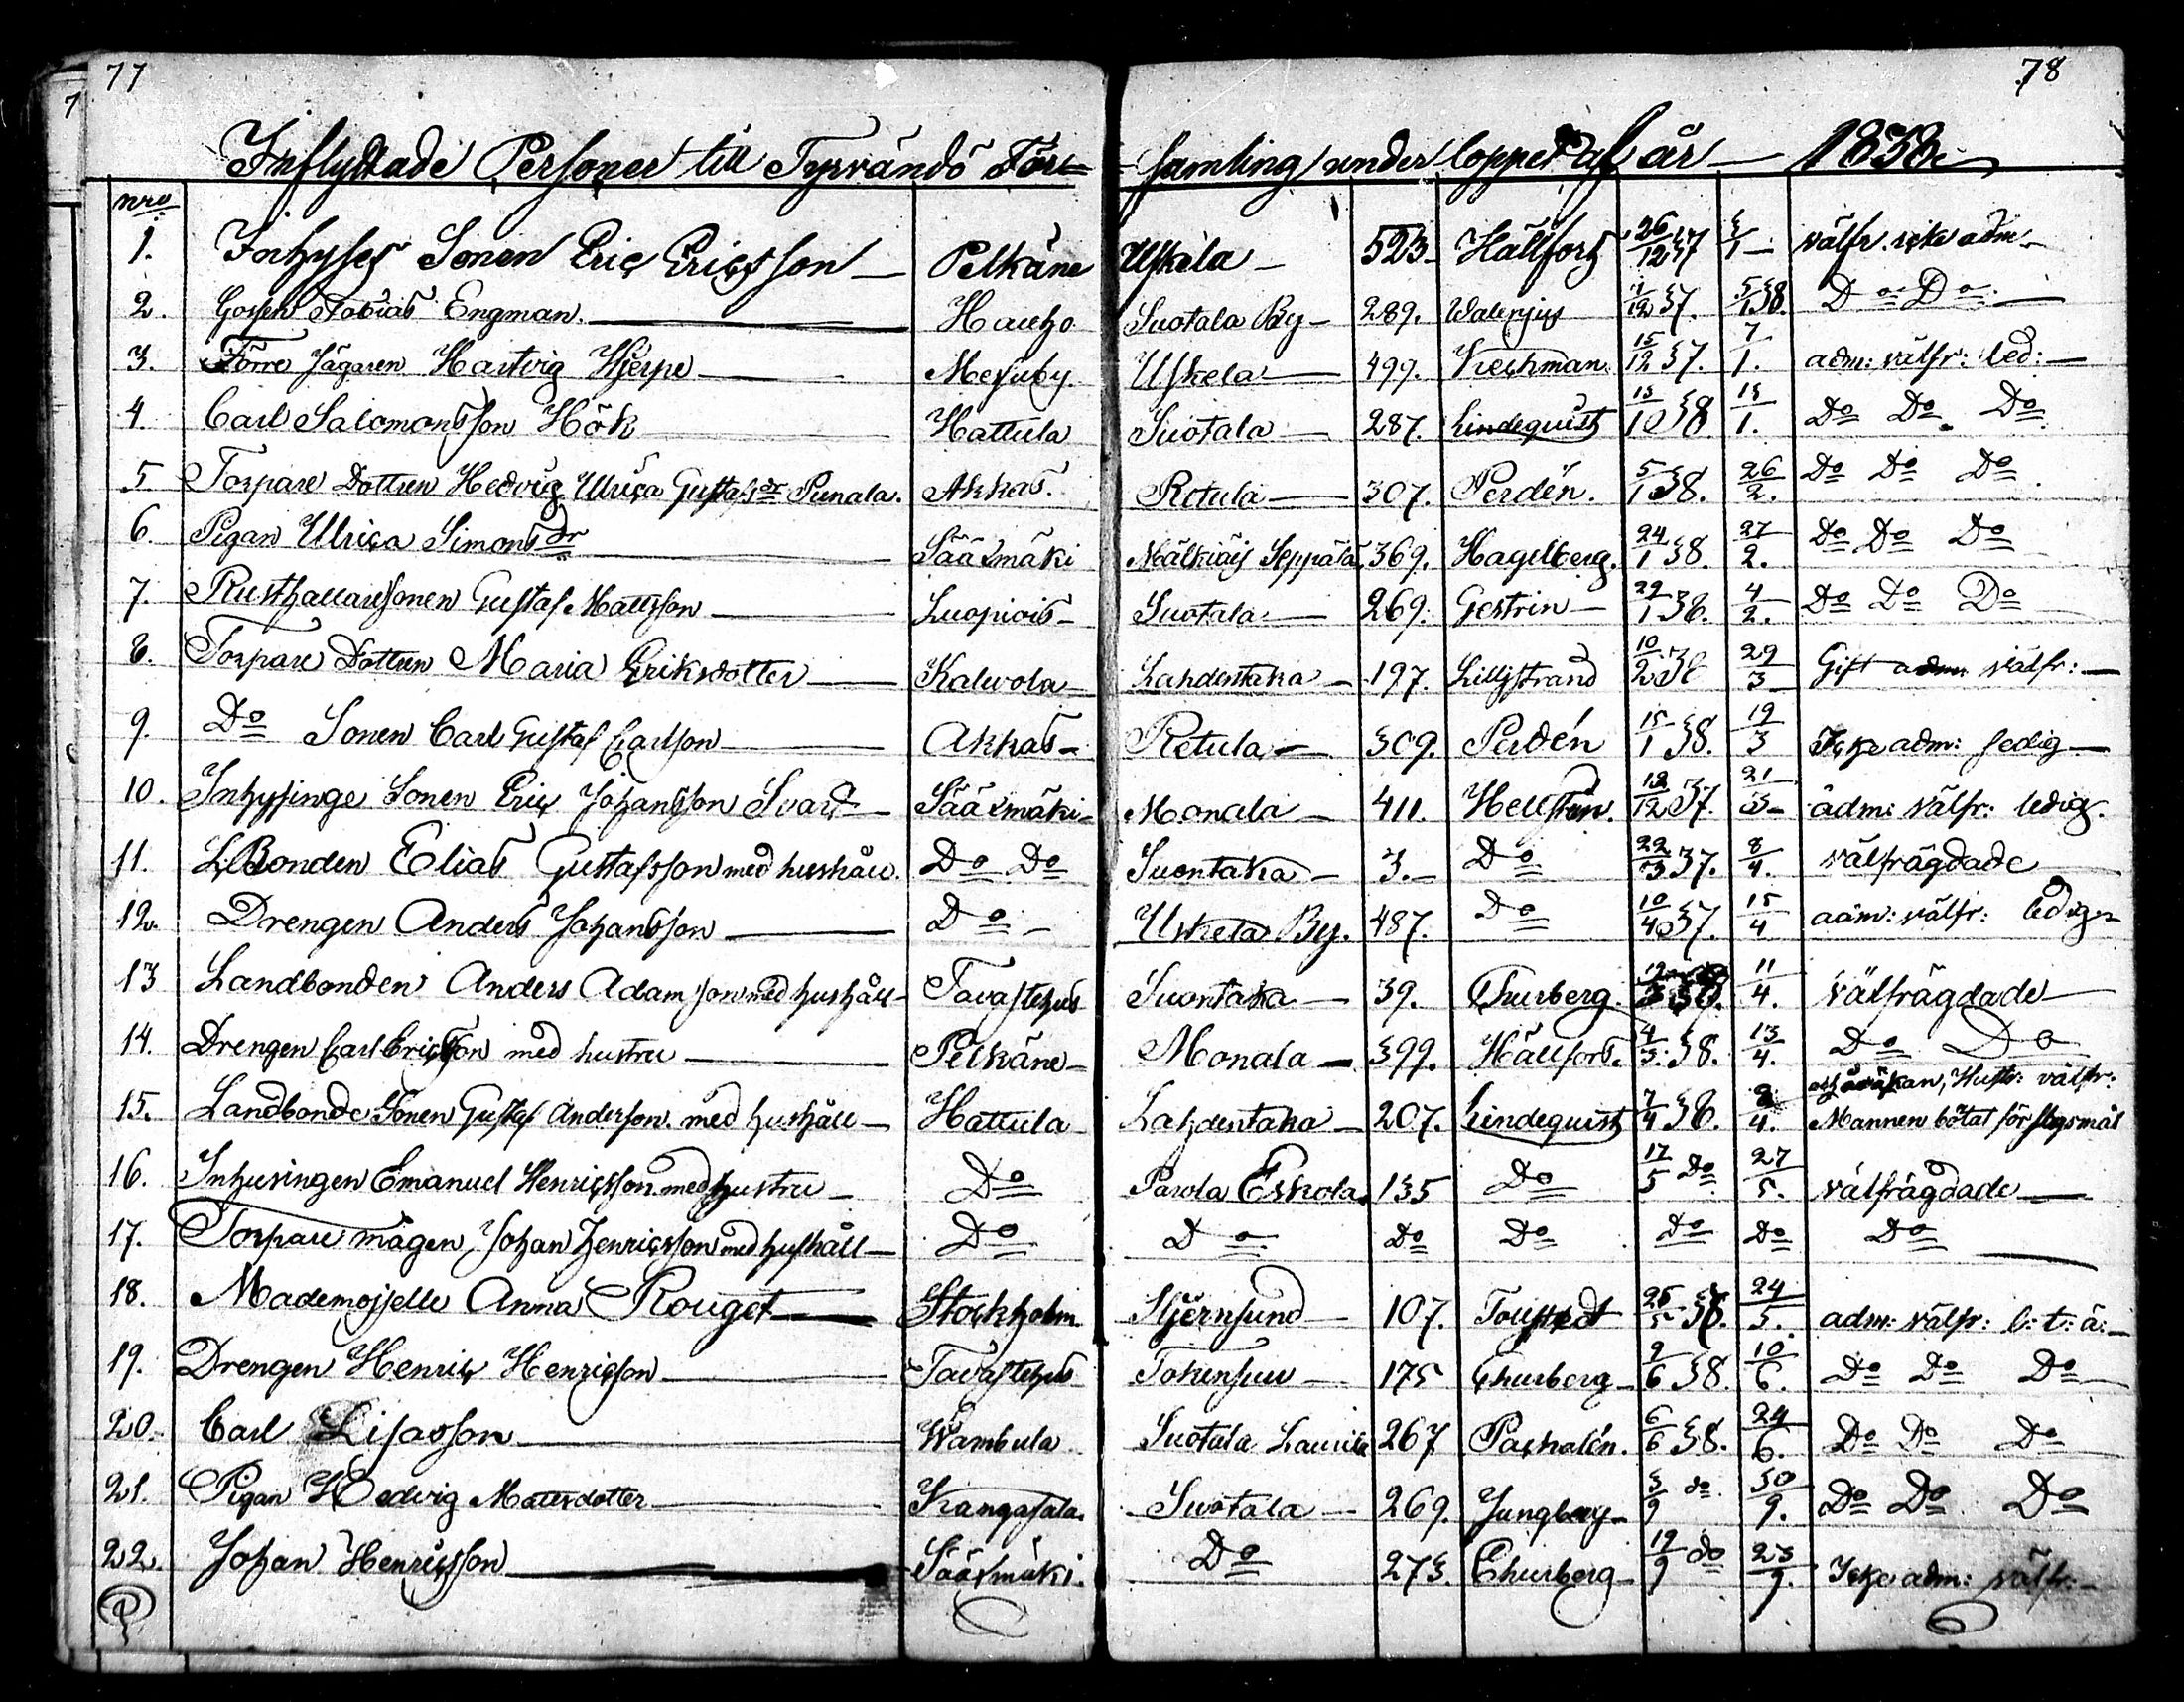 77
78
Inflyttade Personer till Tyrvändö För=
=samling under loppet af år — 1838.
nro
1. Inhyses Sonen Eric Ericsson — Pelkäne Uskela — 523 Hällfors 26/12 37 3/1 — välfr. icke adm.
2. Gossen Tobias Engman. Hauho Suotala By — 289. Walenius /12 37. 5/1 38. Do Do
3. Förre Jägaren Hartvig Hjerpe Messuby. Uskela — 499. Kreckman. 15/12 37. 7/1. adm: välfr: led: —
4. Carl Salomonsson Hök Hattula Suotala — 287. Lindequist 13/10 38. 13/1. Do Do Do
5. Torpare Dottren Hedvig Ulrica Gustafsdr Punala. Akkas. Retula — 307. Perdén. 5/1 38. 26/2. Do Do Do
6. Pigan Ulrica Simonsdr Sääxmäki Mälkiäis Seppälä 369. Hagelberg. 24/1 38. 27/2. Do Do Do
7. Rusthållaresonen Gustaf Mattsson Luopiois — Suotala — 269. Gestrin — 22/1 38. 4/2. Do Do Do
8. Torpare Dottren Maria Eriksdotter Kalvola Lahdentaka — 197. Lilljstrand 10/2 38 29/3 Gift adm välfr: —
9. Do Sonen Carl Gustaf Carlson Akkas — Retula — 309. Perdén 15/1 38. 19/3 Icke adm: ledig —
10. Inhysinge Sonen Eric Johansson Svart Sääxmäki — Monala — 411. Hellstén. 12/12 37. 21/3 — adm: välfr: ledig.
11. L.Bonden Elias Gustafsson med hushåll. Do Do Suontaka — 3. — Do 22/3 37. 8/4. välfrägdade
12. Drengen Anders Johansson Do — Uskela By. 487. Do 10/10 37. 15/4 adm: välfr: ledig
13 Landbonden Anders Adamsson med hushåll — Tavastehus Suontaka — 39. Churberg. 38. 11/4. välfrägdade —
14. Drengen Carl Ericsson med hustru Pelkäne — Monala — 399. Hällfors. 4/3 38. 13/4. Do Do
15. Landbonde Sonen Gustaf Anderson. med hushåll — Hattula Lahdentaka — 207. Lindequist 7/4 38. /4. Hustr: välfr: Mannen bötat för slagsmål
16. Inhysingen Emanuel Henricsson med hustru — Do Parola Eskola. 135 Do 17/5 Do 27/5. välfrägdade —
17. Torpare mågen, Johan Henricsson med hushåll — Do Do Do Do Do Do Do
18. Mademoiselle Anna Rouget Stockholm Stjernsund — 107. 25/5 38. 24/5. adm: välfr: l: t: ä: —
19. Drengen Henric Henricson Tavastehus Tokensuu — 175 Churberg — 2/6 38. 10/6. Do Do Do
20. Carl Lisasson Wambula Suotala Laurila 267 Packalén. 6/6 38. 24/6. Do Do Do
21. Pigan Hedvig Mattsdotter Kangasala. Suotala — 269. Jungberg — 3/9 do. 30/9. Do Do Do
22. Johan Henricsson Sääxmäki. Do 273. Churberg — 12/9 do 23/9. Icke adm: välfr: —